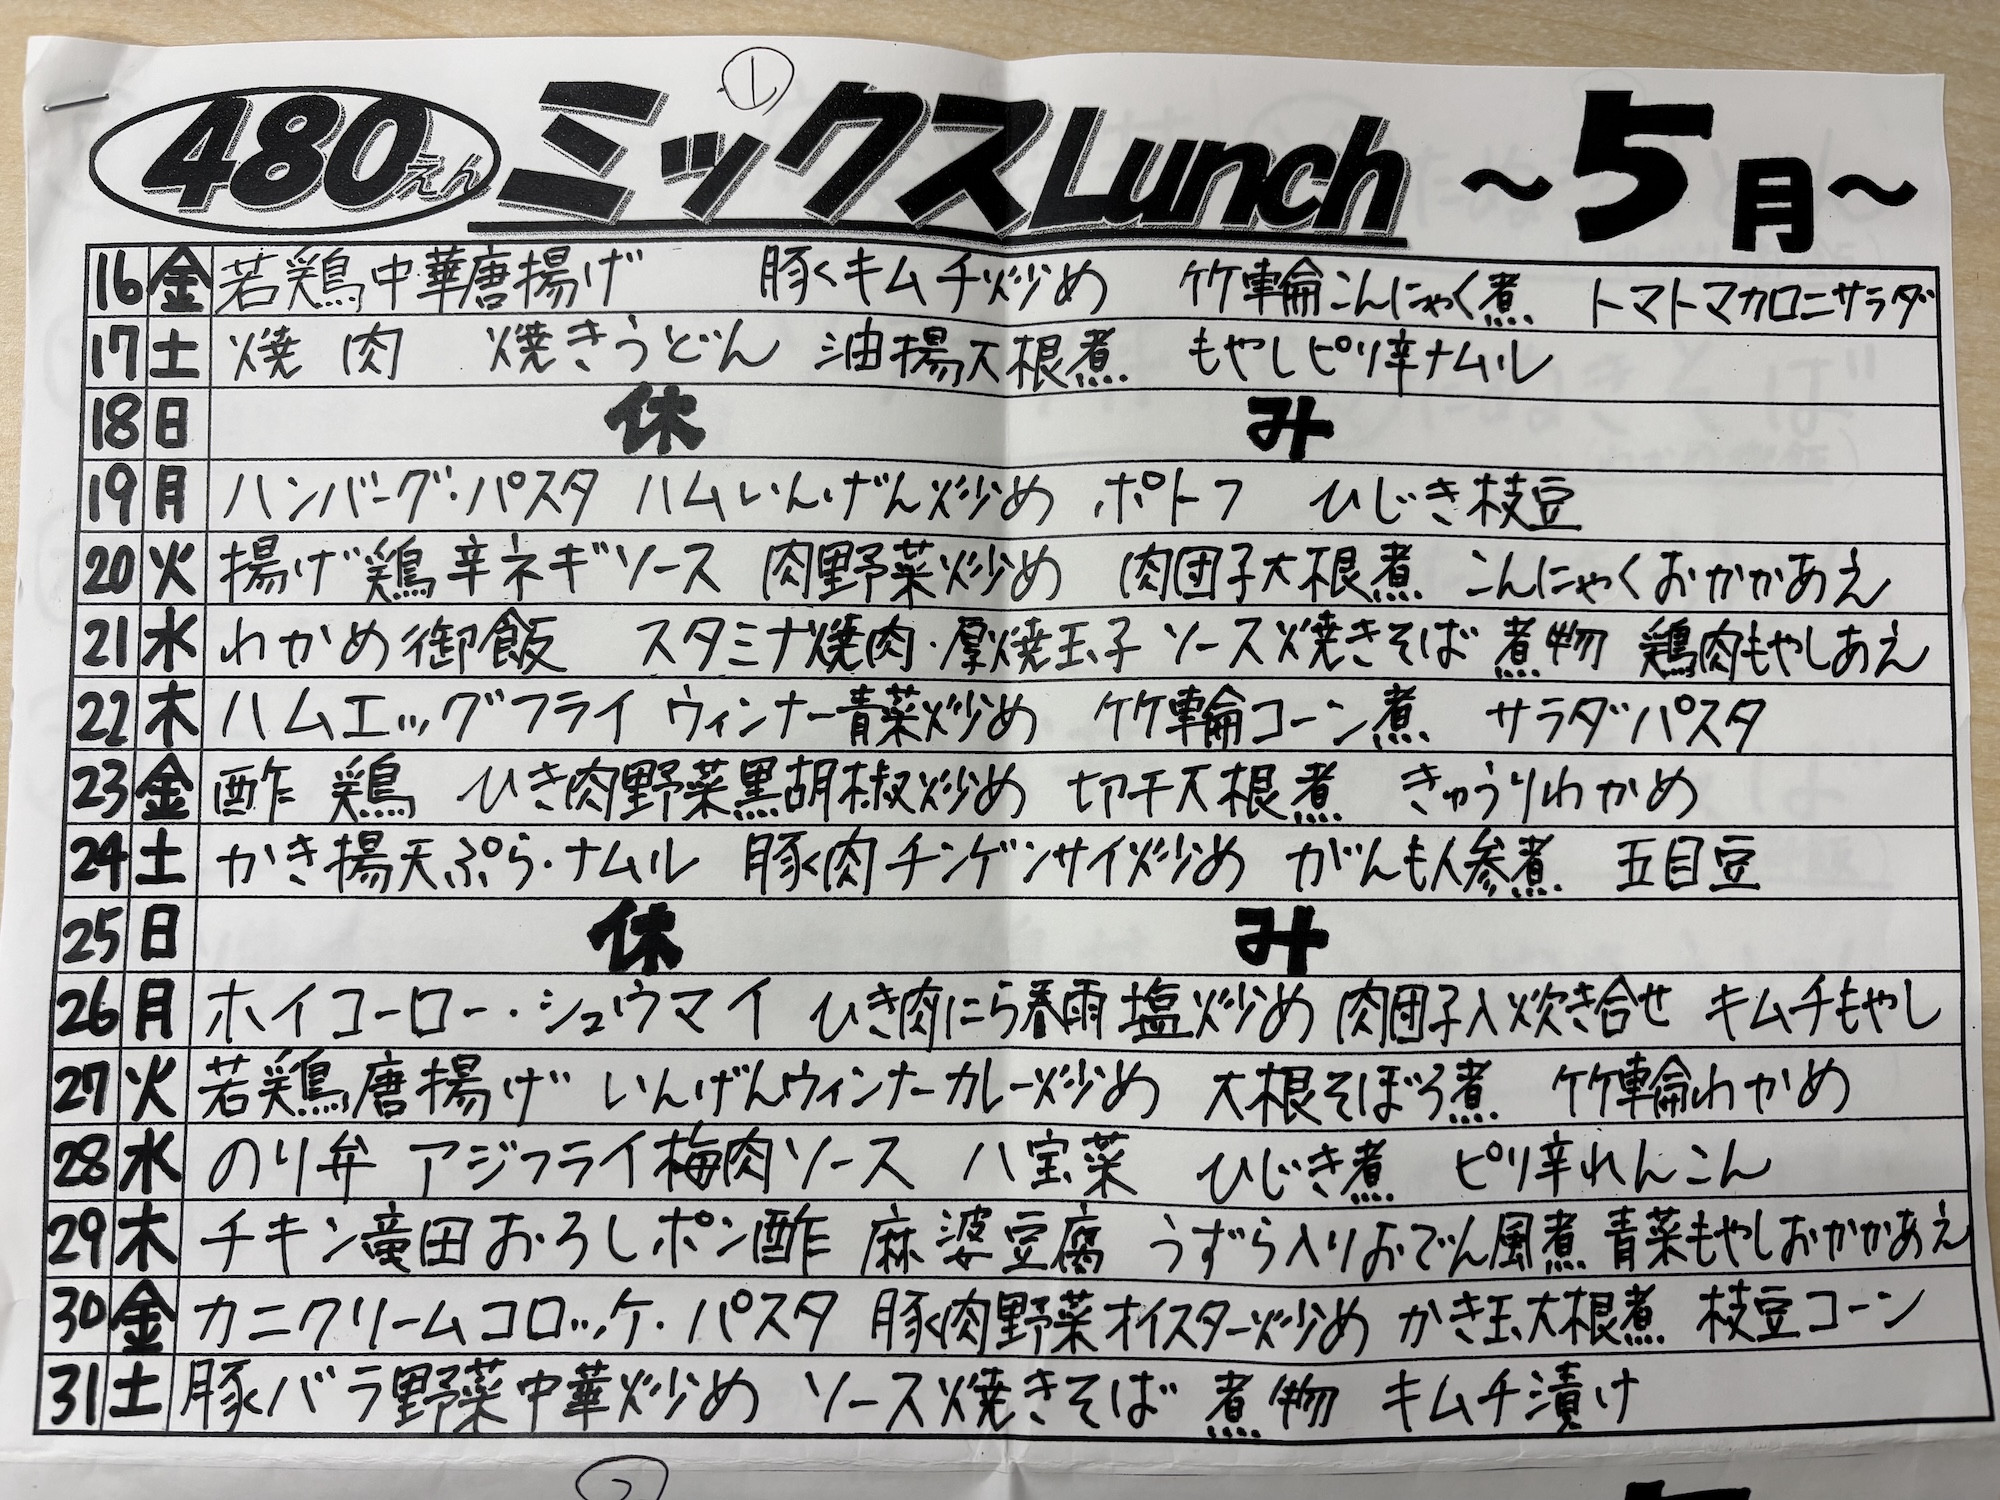 ①
480えん ミックスLunch ～5月～
16 金 若鶏中華唐揚げ 豚キムチ炒め 竹輪こんにゃく煮 トマトマカロニサラダ
17 土 焼肉 焼きうどん 油揚大根煮 もやしピリ辛ナムル
18 日 休み
19 月 ハンバーグ・パスタ ハムいんげん炒め ポトフ ひじき枝豆
20 火 揚げ鶏辛ネギソース 肉野菜炒め 肉団子大根煮 こんにゃくおかかあえ
21 水 わかめ御飯 スタミナ焼肉・厚焼玉子 ソース焼きそば 煮物 鶏肉もやしあえ
22 木 ハムエッグフライ ウィンナー青菜炒め 竹輪コーン煮 サラダパスタ
23 金 酢鶏 ひき肉野菜黒胡椒炒め 切干大根煮 きゅうりわかめ
24 土 かき揚天ぷら・ナムル 豚肉チンゲンサイ炒め がんも人参煮 五目豆
25 日 休み
26 月 ホイコーロー・シュウマイ ひき肉にら春雨塩炒め 肉団子入炊き合せ キムチもやし
27 火 若鶏唐揚げ いんげんウィンナーカレー炒め 大根そぼろ煮 竹輪わかめ
28 水 のり弁 アジフライ梅肉ソース 八宝菜 ひじき煮 ピリ辛れんこん
29 木 チキン竜田おろしポン酢 麻婆豆腐 うずら入りおでん風煮 青菜もやしおかかあえ
30 金 カニクリームコロッケ・パスタ 豚肉野菜オイスター炒め かき玉大根煮 枝豆コーン
31 土 豚バラ野菜中華炒め ソース焼きそば 煮物 キムチ漬け